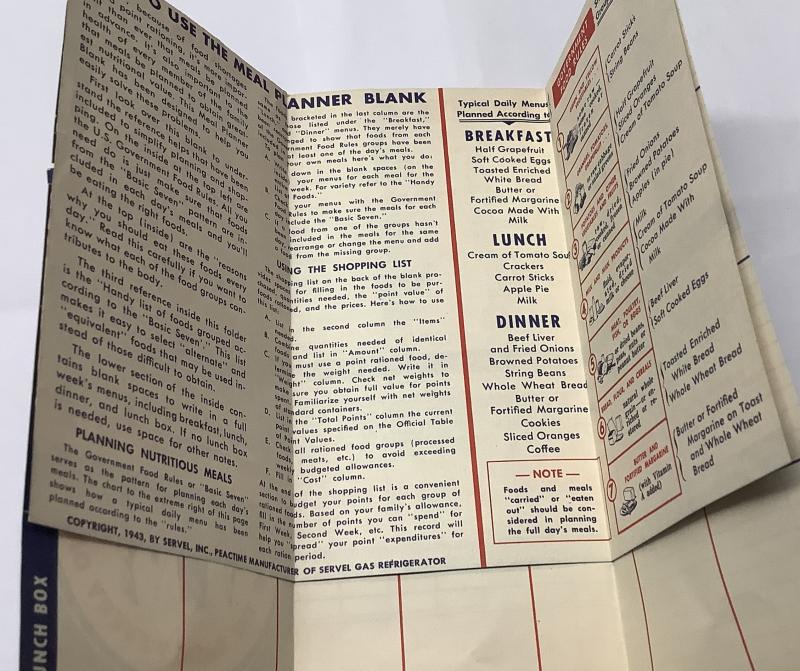 O USE THE MEAL PLANNER BLANK
because of food shortages
point rationing, it's more impor-
tant than ever, that meals be planned
in advance. It's also important to the
health of every member of the family
that meals be planned to obtain great-
est nutritional value. This Meal Planner
Blank has been designed to help you
easily solve these problems.
First look over this blank to under-
stand the reference helps that have been
included to simplify planning and shop-
ping. On the inside at the top left, are
the U. S. Government Food Rules. All you
need do is just make sure that foods
from the "Basic Seven" pattern are in-
cluded in each day's meals and you'll
be eating the right foods.
At the top (inside) are the "reasons
why you should eat these foods every
day." Read this carefully if you want to
know what each of the foods groups con-
tributes to the body.
The third reference inside this folder
is the "Handy list of foods grouped ac-
cording to the Basic Seven." This list
makes it easy to select "alternate" and
"equivalent" foods that may be used in-
stead of those difficult to obtain.
The lower section of the inside con-
tains blank spaces to write in a full
week's menus, including breakfast, lunch,
dinner, and lunch box. If no lunch box
is needed, use space for other notes.
PLANNING NUTRITIOUS MEALS
The Government Food Rules or "Basic Seven"
serves as the pattern for planning each day's
meals. The chart to the extreme right of this page
shows how a typical daily menu has been
planned according to the "rules."
COPYRIGHT, 1943, BY SERVEL, INC., PEACTIME MANUFACTURER OF SERVEL GAS REFRIGERATOR
bracketed in the last column are the
ose listed under the "Breakfast,"
"Dinner" menus. They merely have
nged to show that foods from each
nment Food Rules groups have been
t least one of the day's meals.
our own meals here's what you do:
down in the blank spaces (on the
your menus for each meal for the
week. For variety refer to the "Handy
Foods."
your menus with the Government
Rules to make sure the meals for each
include the "Basic Seven."
food from one of the groups hasn't
included in the meals for the same
rearrange or change the menu and add
from the missing group.
NG THE SHOPPING LIST
ing list on the back of the blank pro-
for filling in the foods to be pur-
antities needed, the "point value" of
d, and the prices. Here's how to use
n the second column the "Items"
e quantities needed of identical
and list in "Amount" column.
must use a point rationed food, de-
the weight needed. Write it in
ght" column. Check net weights to
sure you obtain full value for points
Familiarize yourself with net weights
ndard containers.
the "Total Points" column the current
values specified on the Official Table
nt Values.
all rationed foods (processed
meats, etc.) to avoid exceeding
budgeted allowances.
"Cost" column.
of the shopping list is a convenient
udget your points for each group of
foods. Based on your family's allowance,
number of points you can "spend" for
First Week, Second Week, etc. This record will
help you "spread" your point "expenditures" for
each ration period.
Typical Daily Menus
Planned According to
BREAKFAST
Half Grapefruit
Soft Cooked Eggs
Toasted Enriched
White Bread
Butter or
Fortified Margarine
Cocoa Made With
Milk
LUNCH
Cream of Tomato Soup
Crackers
Carrot Sticks
Apple Pie
Milk
DINNER
Beef Liver
and Fried Onions
Browned Potatoes
String Beans
Whole Wheat Bread
Butter or
Fortified Margarine
Cookies
Sliced Oranges
Coffee
— NOTE —
Foods and meals
"carried" or "eaten
out" should be con-
sidered in planning
the full day's meals.
GOVERNMENT
FOOD RULES
Carrot Sticks
String Beans
Half Grapefruit
Sliced Oranges
Cream of Tomato Soup
Fried Onions
Browned Potatoes
Apples (in pie)
Milk
Cream of Tomato Soup
Cocoa Made With
Milk
Beef Liver
Soft Cooked Eggs
Toasted Enriched
White Bread
Whole Wheat Bread
Butter or Fortified
Margarine on Toast
and Whole Wheat
Bread
4
MILK AND MILK PRODUCTS
5
MEAT, POULTRY,
FISH, OR EGGS
6
BREAD, FLOUR, AND CEREALS
7
BUTTER AND
FORTIFIED MARGARINE
(with Vitamin
A added)
UNCH BOX